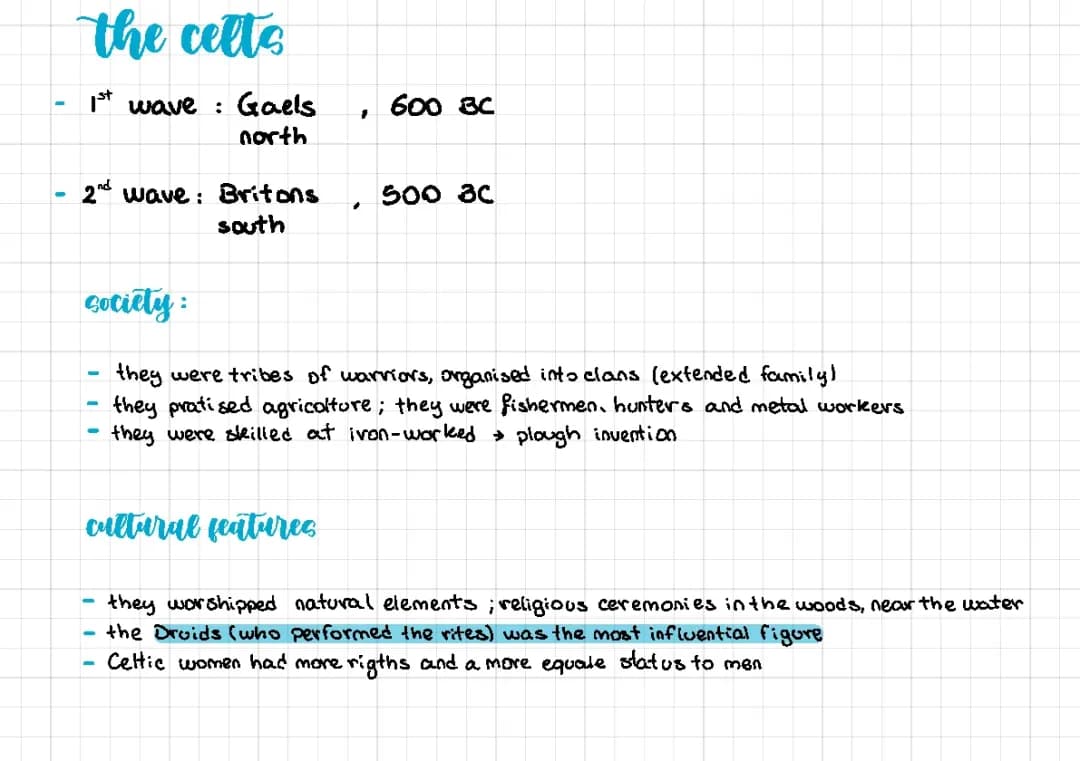 the celts
- 1st wave : Gaels , 600 BC
north
- 2nd wave : Britons , 500 BC
south
society :
- they were tribes of warriors, organised into clans (extended family)
- they pratised agricolture ; they were fishermen, hunters and metal workers
- they were skilled at iron-worked → plough invention
cultural features
- they worshipped natural elements ; religious ceremonies in the woods, near the water
- the Druids (who performed the rites) was the most influential figure
- Celtic women had more rigths and a more equale status to men